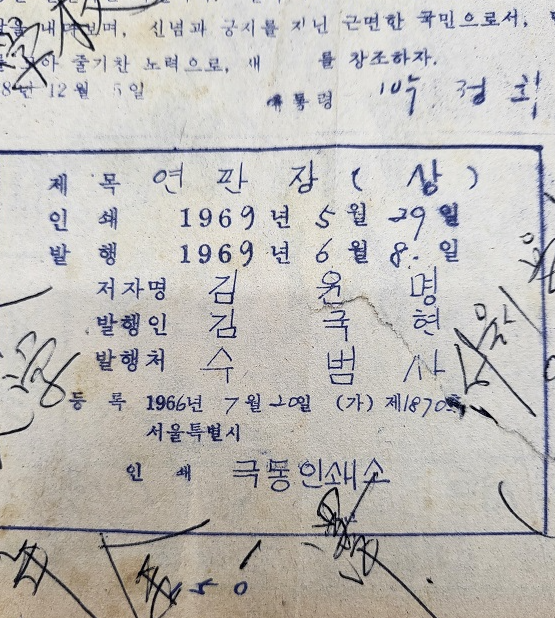 내 보며, 신념과 긍지를 지닌 근면한 국민으로서,
줄기찬 노력으로, 새 를 창조하자.
8년 12월 5일
대통령 박 정 희
제 목 연 판 장 ( 상 )
인 쇄 1969년 5월 29일
발 행 1969년 6월 8. 일
저자명 김 윤 명
발행인 김 국 현
발행처 수 범 사
등 록 1966년 7월 20일 (가) 제1870호
서울특별시
인 쇄 극동인쇄소
50